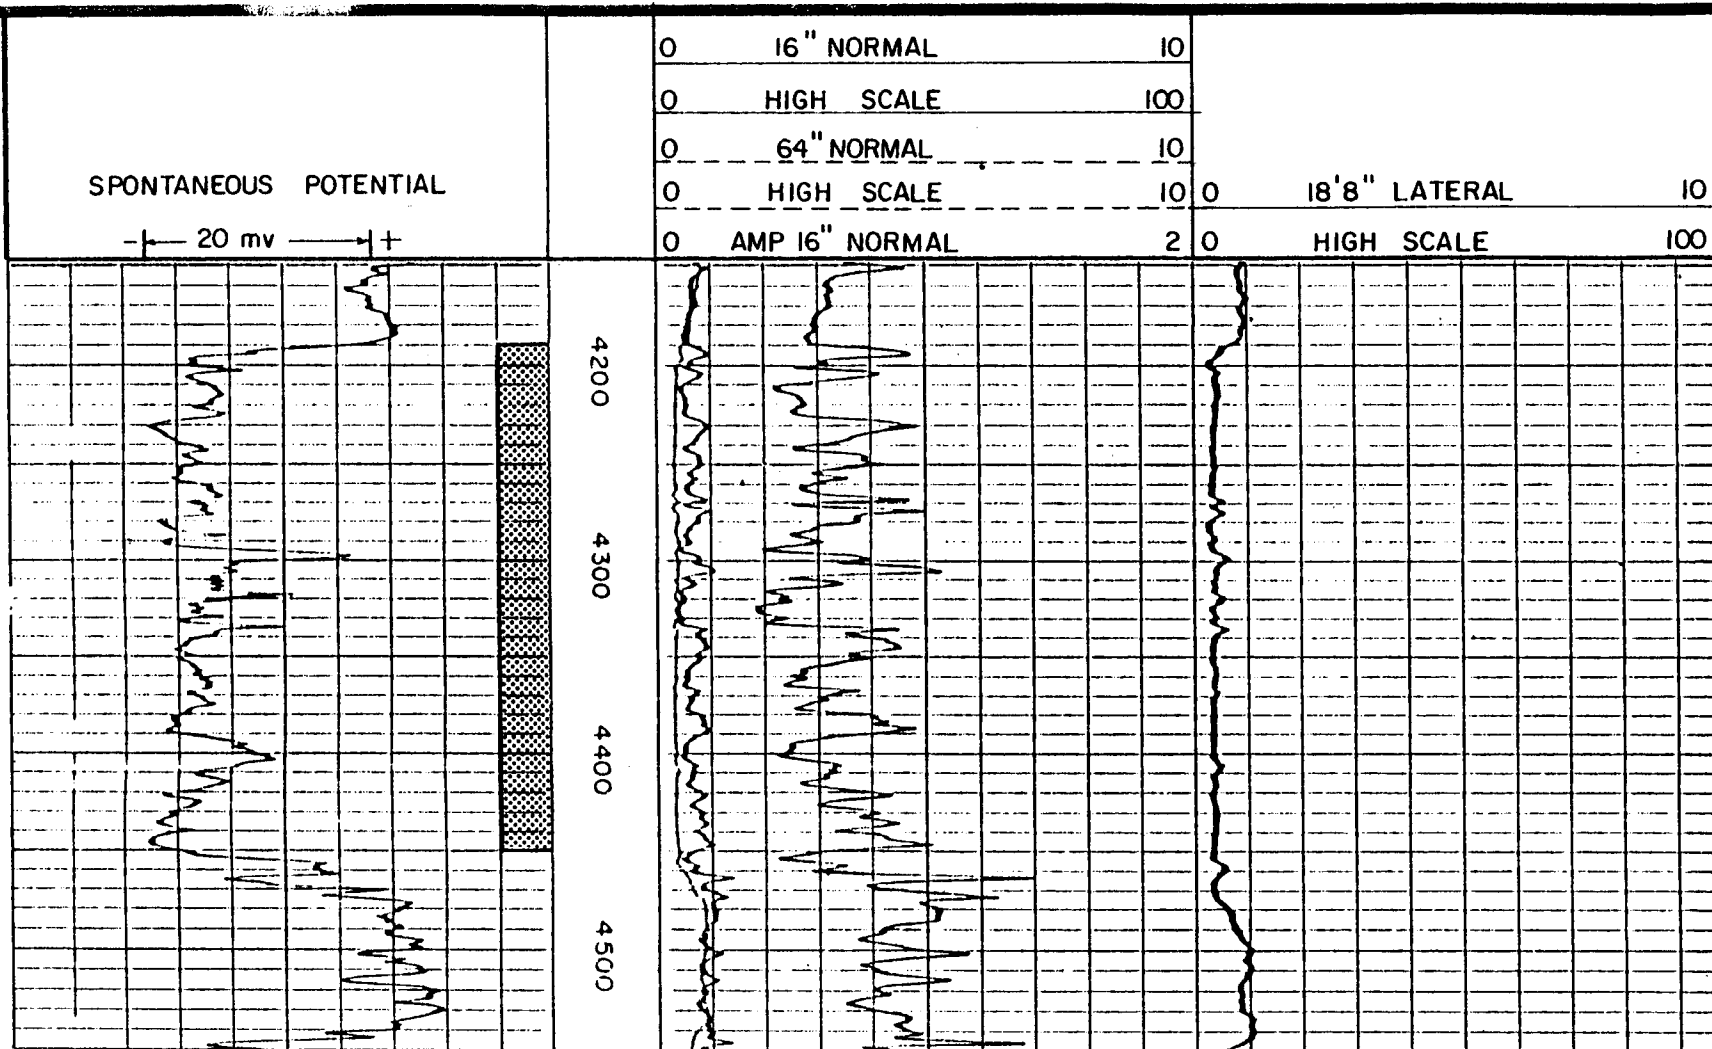 SPONTANEOUS POTENTIAL
- 20 mv +
0 16" NORMAL 10
0 HIGH SCALE 100
0 64" NORMAL 10
0 HIGH SCALE 10
0 AMP 16" NORMAL 2
0 18'8" LATERAL 10
0 HIGH SCALE 100
4200
4300
4400
4500